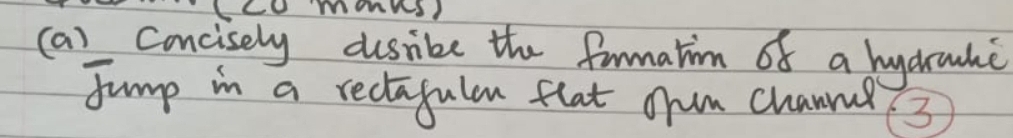 (20 marks)
(a) Concisely desribe the formation of a hydraulic
Jump in a rectagular flat open channel. 3